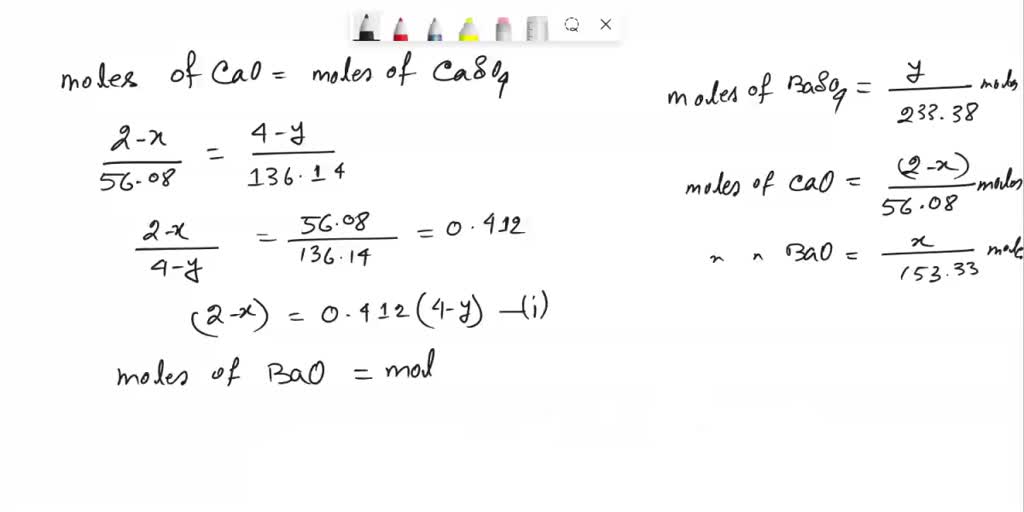 moles of CaO = moles of CaSO4
2-x / 56.08 = 4-y / 136.14
2-x / 4-y = 56.08 / 136.14 = 0.412
(2-x) = 0.412 (4-y) —(i)
moles of BaO = mol
moles of BaSO4 = y / 233.38 moles
moles of CaO = (2-x) / 56.08 moles
" " BaO = x / 153.33 mole